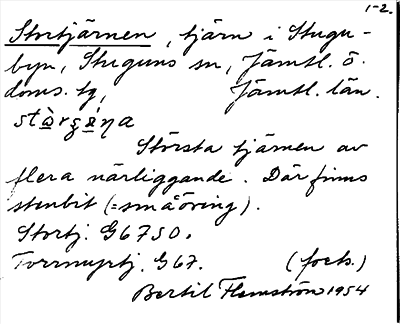 1-2.
Stortjärnen, tjärn i Stugu-
byn, Stuguns sn, Jämtl. ö.
doms. tg, Jämtl. län.
Största tjärnen av
flera närliggande. Där finns
stenbit (=småöring).
Stortj. G6750.
Torrmyrtj. G67. (forts.)
Bertil Flemström 1954